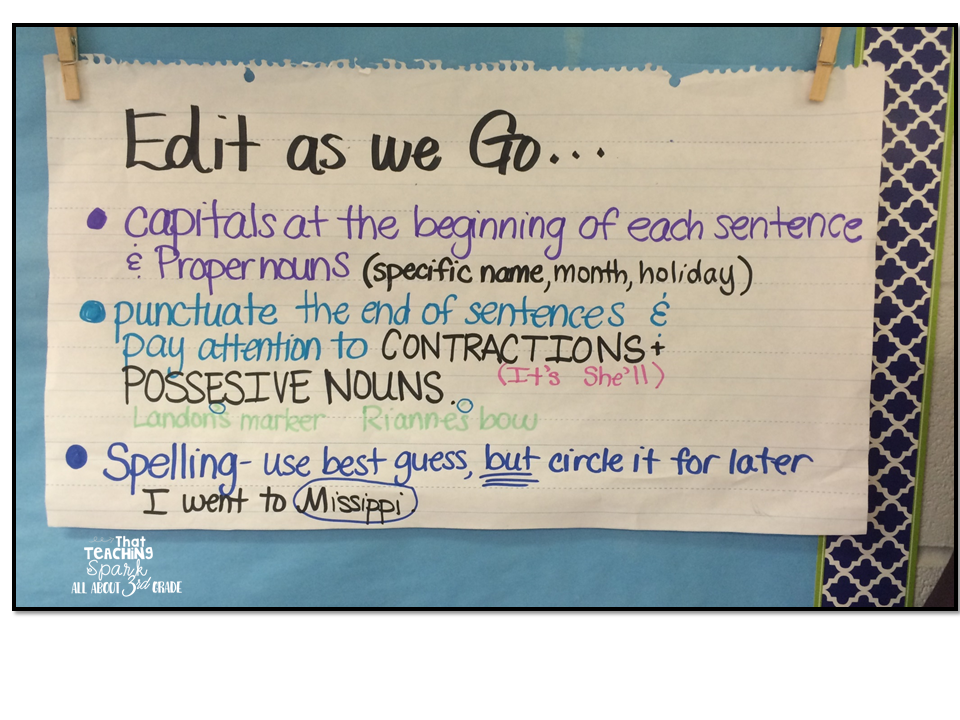 Edit as we Go...
• capitals at the beginning of each sentence
& Proper nouns (specific name, month, holiday)
• punctuate the end of sentences &
pay attention to CONTRACTIONS +
(It's She'll)
POSSESIVE NOUNS.
Landon's marker Rianne's bow
• Spelling - use best guess, but circle it for later
I went to Missippi
That
TEACHING
Spark
ALL ABOUT 3rd GRADE